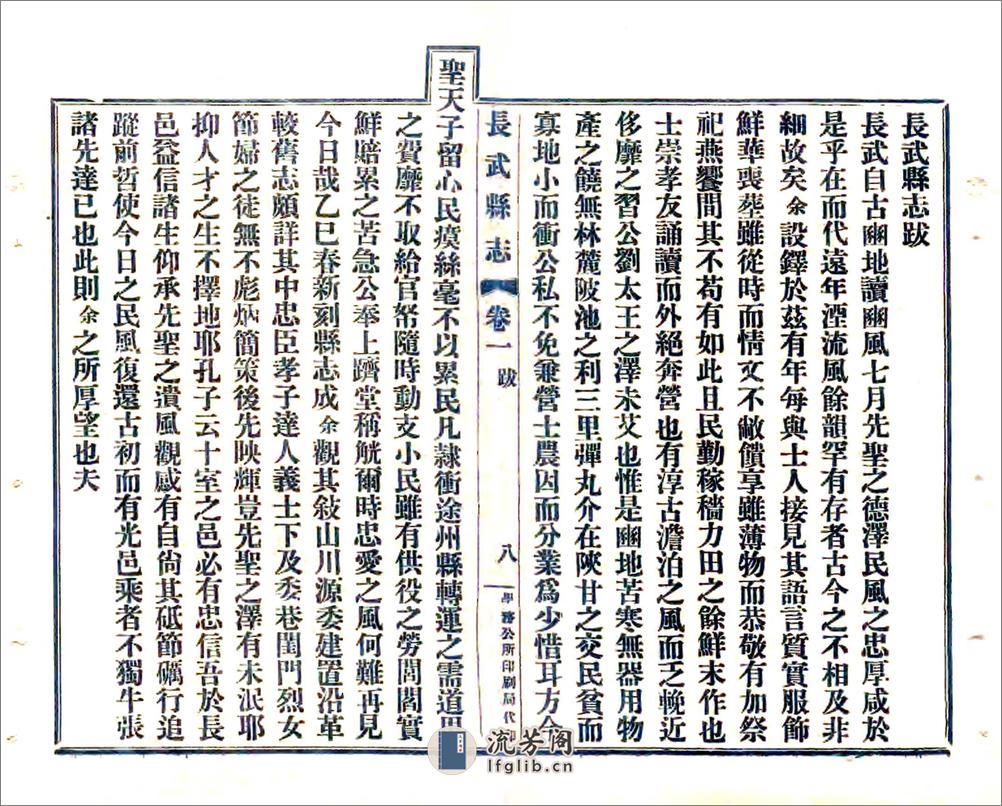 長武縣志跋
長武自古豳地讀豳風七月先聖之德澤民風之忠厚咸於
是乎在而代遠年湮流風餘韻罕有存者古今之不相及非
細故矣余設鐸於茲有年每與士人接見其語言質實服飾
鮮華喪葬雖從時而情文不敝饋享雖薄物而恭敬有加祭
祀燕饗間其不苟有如此且民勤稼穡力田之餘鮮末作也
士崇孝友誦讀而外絕奔營也有淳古澹泊之風而乏輓近
侈靡之習公劉太王之澤未艾也惟是豳地苦寒無器用物
產之饒無林麓陂池之利三里彈丸介在陝甘之交民貧而
寡地小而衝公私不免兼營士農因而分業為少惜耳方今
長武縣志 卷一 跋 八 學務公所印刷局代
聖天子留心民瘼絲毫不以累民凡隸衝途州縣轉運之需道
之費靡不取給官帑隨時動支小民雖有供役之勞閭閻實
鮮賠累之苦急公奉上躋堂稱觥爾時忠愛之風何難再見
今日哉乙巳春新刻縣志成余觀其敍山川源委建置沿革
較舊志頗詳其中忠臣孝子達人義士下及委巷閨門烈女
節婦之徒無不彪炳簡策後先映輝豈先聖之澤有未泯耶
抑人才之生不擇地耶孔子云十室之邑必有忠信吾於長
邑益信諸生仰承先聖之遺風觀感有自尙其砥節礪行追
蹤前哲使今日之民風復還古初而有光邑乘者不獨牛張
諸先達已也此則余之所厚望也夫
流芳阁
lfglib.cn